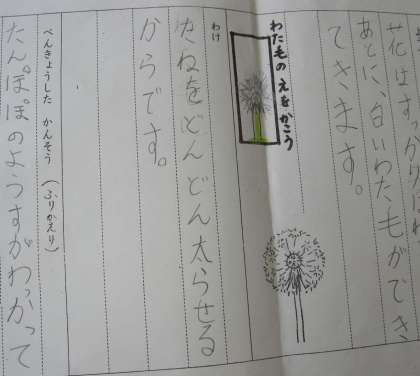 花はすっかりかれ
あとに、白いわた毛ができ
てきます。
わた毛の えを かこう
わけ
たねをどんどん太らせる
からです。
べんきょうした かんそう (ふりかえり)
たんぽぽのようすがわかって